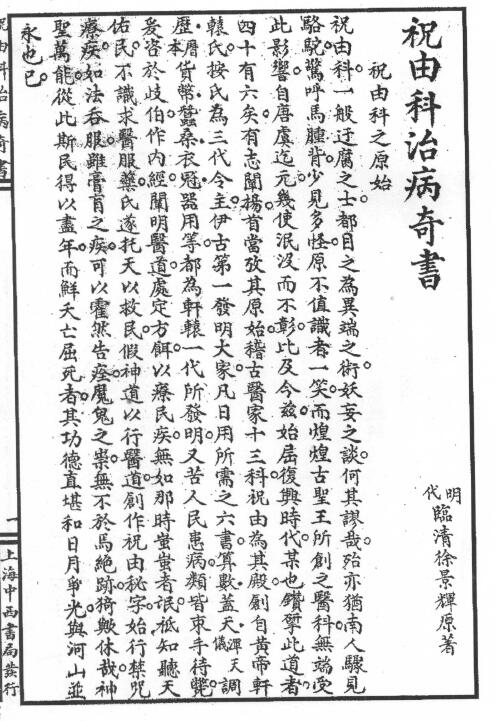 祝由科治病奇書
祝由科之原始
明代臨清徐景輝原著
祝由科。一般迂腐之士。都目之為異端之術。妖妄之談。何其謬哉。殆亦猶南人驟見
駱駝驚呼馬腫背。少見多怪。原不值識者一笑。而煌煌古聖王所創之醫科。無端受
此影響。自唐虞迄元。幾使泯沒而不彰。比及今茲。始屆復興時代。某也鑽掔此道者
四十有六矣。有志闡揚。首當攷其原始。稽古醫家十三科。祝由為其殿。創自黃帝軒
轅氏。按氏為三代令主。伊古第一發明大家。凡日用所需之六書、算數、蓋天、渾天儀、調
歷、曆本、貨幣、蠶桑、衣冠、器用等。都為軒轅一代所發明。又苦人民患病。類皆束手待斃。
爰咨於歧伯。作內經。闡明醫道。處定方餌。以療民疾。無如那時蚩蚩者氓。祗知聽天
佑民。不識求醫服藥。氏遂托天以救民。假神道以行醫道。創作祝由秘字。始行禁咒
療疾。如法吞服。雖膏肓之疾。可以霍然告痊。魔鬼之祟。無不於焉絕跡。猗歟休哉。神
聖萬能。從此斯民得以盡年。而鮮夭亡屈死者。其功德直堪和日月爭光。與河山並
永也已。
祝由科治病奇書
一
上海中西書局發行